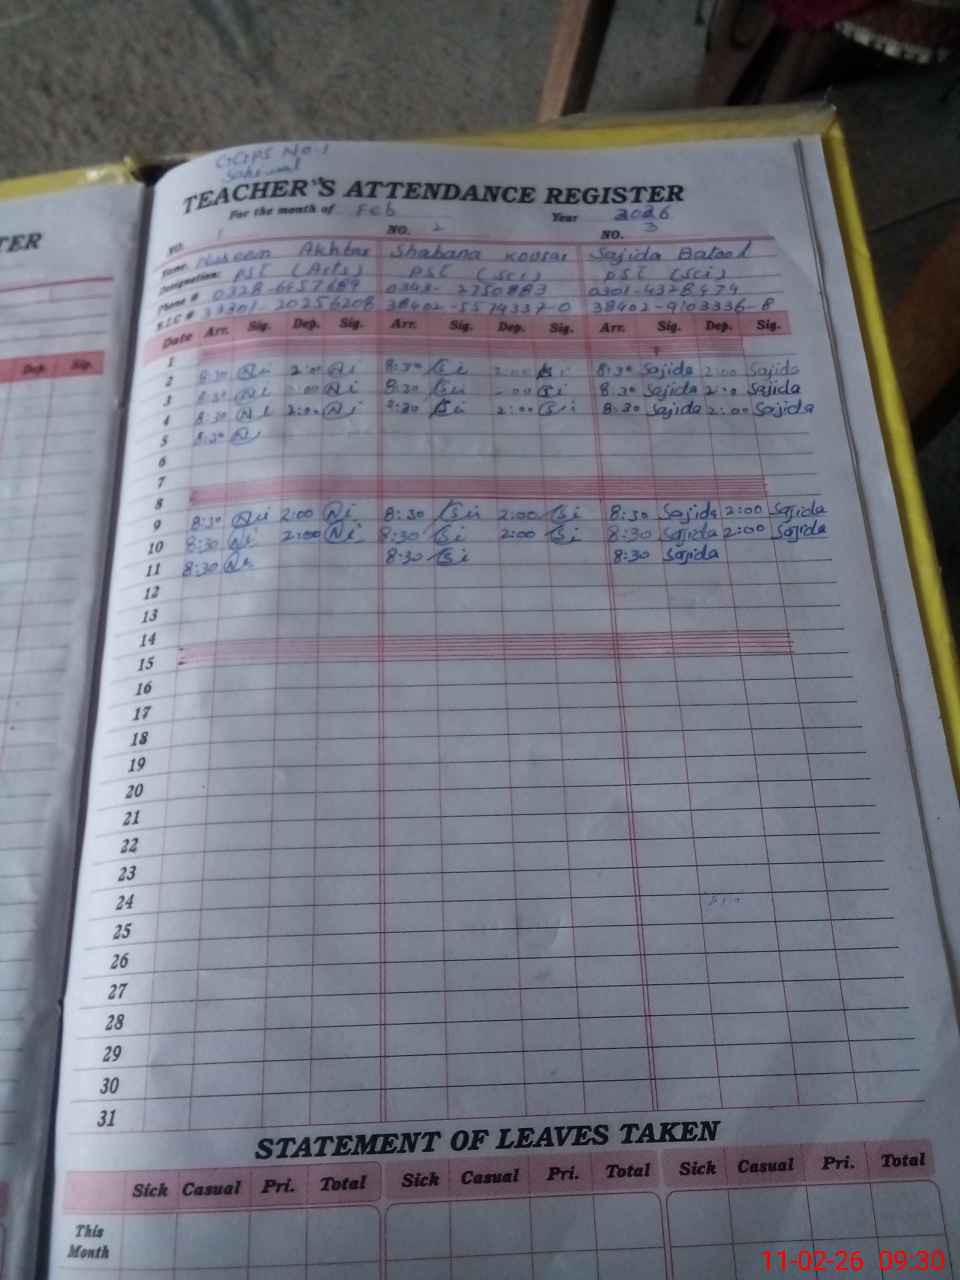 GGPS No.1
Sahiwal
TEACHER'S ATTENDANCE REGISTER
For the month of Feb Year 2026
NO. 1 NO. 2 NO. 3
Name. Akhtar Shabana Kousar Sajida Batool
Designation: PST (Arts) PST (Sci) PST (Sci)
Phone # 0328-6457689 0301-4328474
N.I.C # 38402-5574337-0 38402-9103336-8
TER
Dep. Sig.
Date Arr. Sig. Dep. Sig. Arr. Sig. Dep. Sig. Arr. Sig. Dep. Sig.
1
2 8:30 Ni 2:00 Ni 8:30 Si 2:00 Si 8:30 Sajida 2:00 Sajida
3 8:30 Ni 2:00 Ni 8:30 Si Si 8:30 Sajida 2:00 Sajida
4 8:30 Ni 2:00 Ni 8:30 Si 2:00 Si 8:30 Sajida 2:00 Sajida
5 8:30 Ni
6
7
8
9 8:30 Ni 2:00 Ni 8:30 Si 2:00 Si 8:30 Sajida 2:00 Sajida
10 8:30 Ni 2:00 Ni 8:30 Si 2:00 Si 8:30 Sajida 2:00 Sajida
11 8:30 Ni 8:30 Si 8:30 Sajida
12
13
14
15
16
17
18
19
20
21
22
23
24
25
26
27
28
29
30
31
STATEMENT OF LEAVES TAKEN
Sick Casual Pri. Total Sick Casual Pri. Total Sick Casual Pri. Total
This
Month
11-02-26 09:30